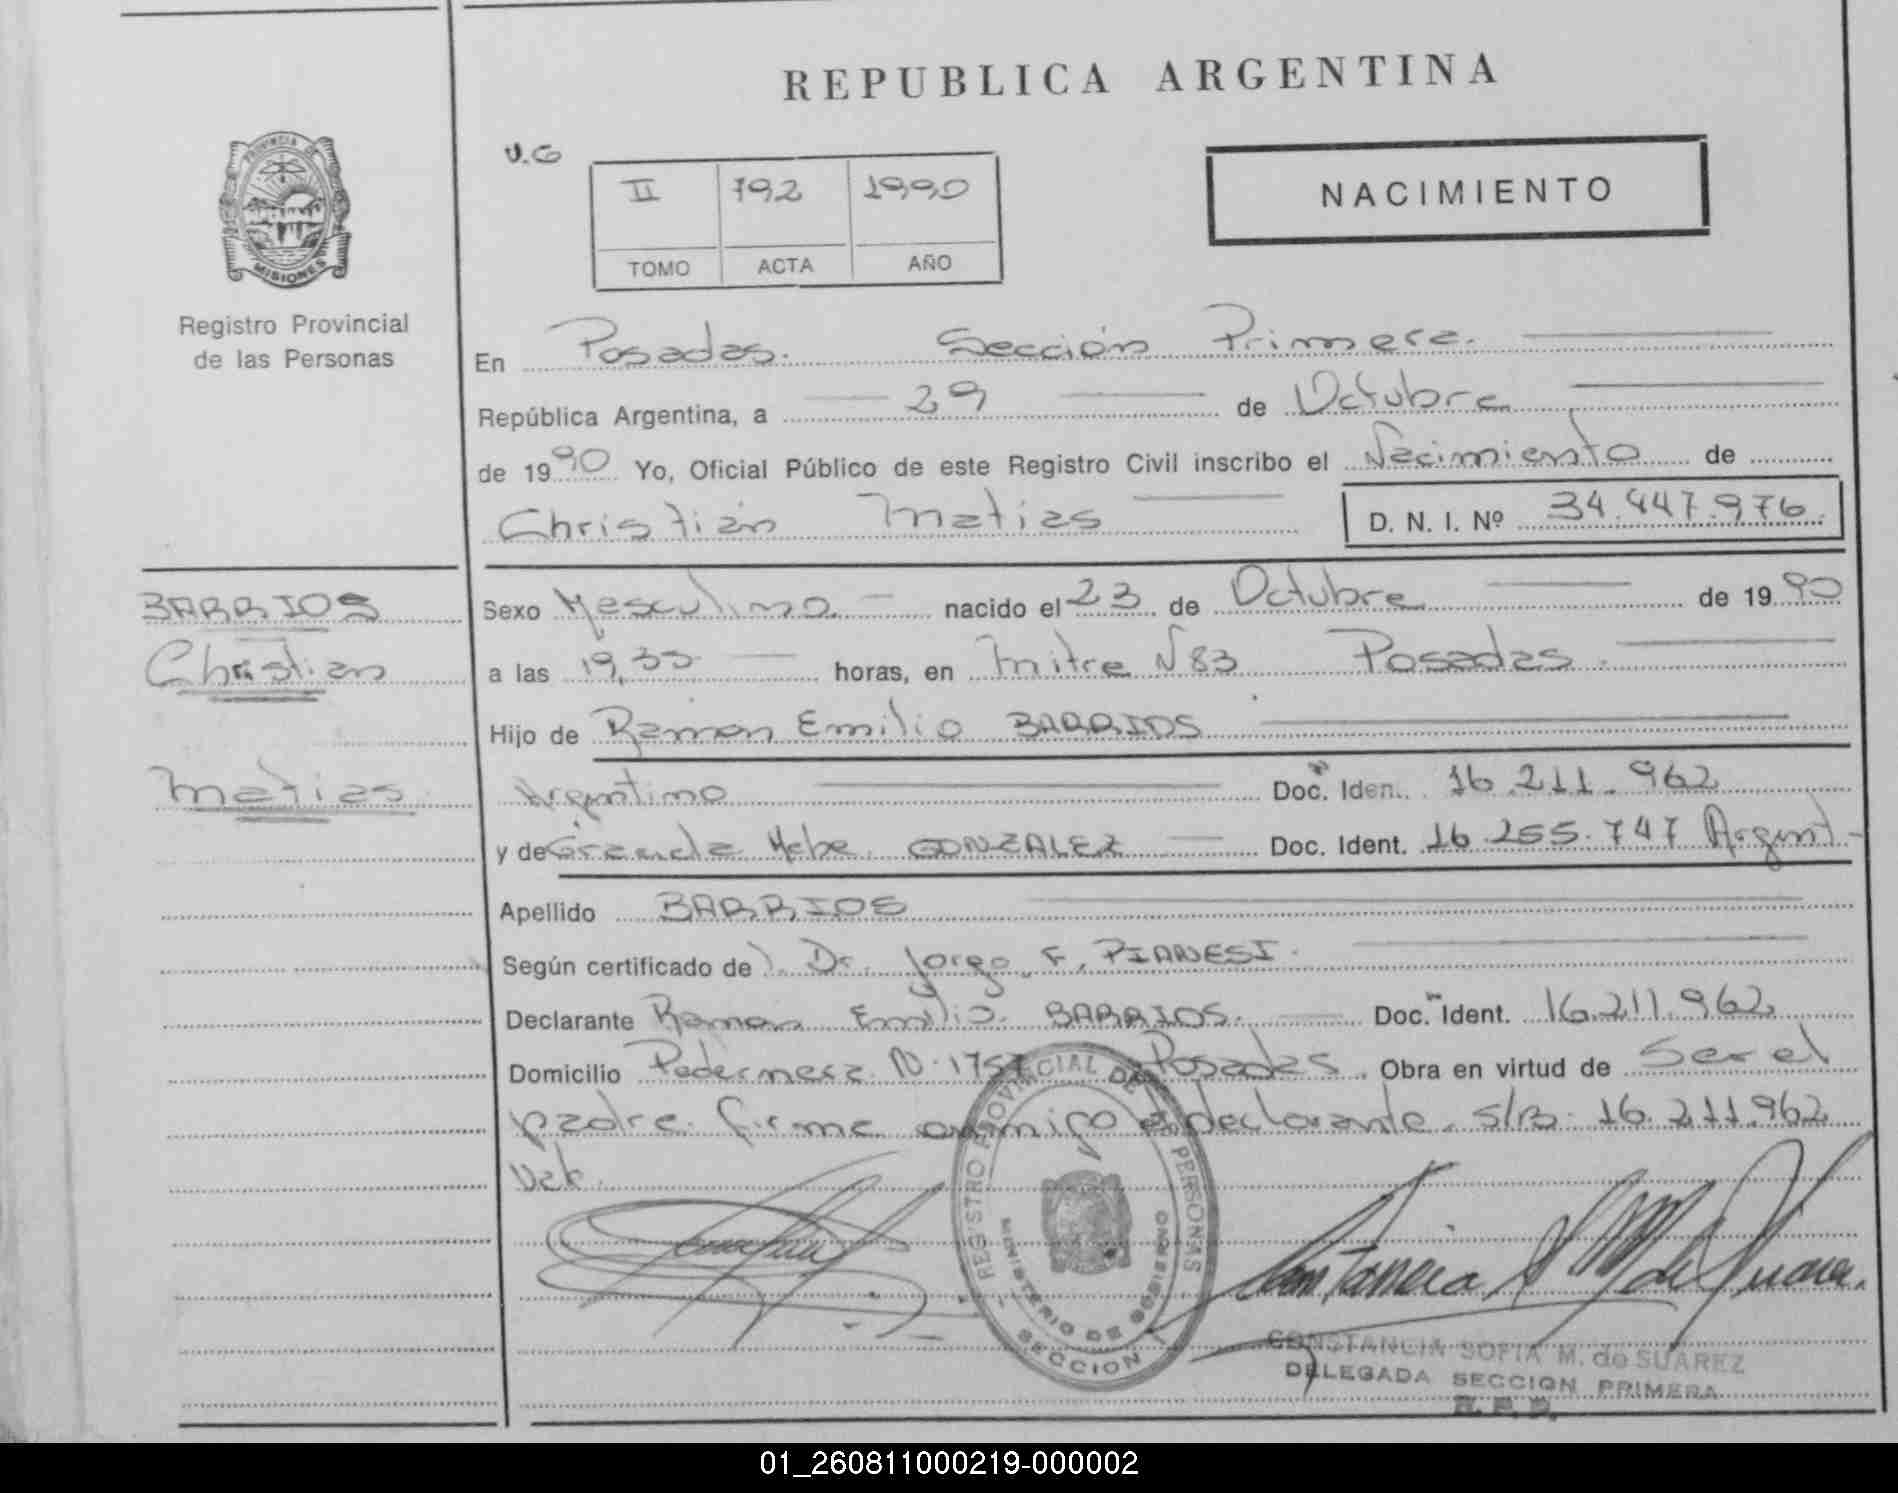 REPUBLICA ARGENTINA
PROVINCIA DE
MISIONES
Registro Provincial
de las Personas
V.G
II 792 1990
TOMO ACTA AÑO
NACIMIENTO
En Posadas. Sección Primera.
República Argentina, a 29 de Octubre
de 1990 Yo, Oficial Público de este Registro Civil inscribo el Nacimiento de
Christián Matias D. N. I. Nº 34.447.976.
BARRIOS
Christian
Matias
Sexo Masculino. nacido el 23 de Octubre de 1990
a las 19,35 horas, en Mitre N 83 Posadas.
Hijo de Ramon Emilio BARRIOS
Argentino Doc. Iden. 16.211.962
y de Graciela Hebe GONZALEZ Doc. Ident. 16.255.747 Argent.
Apellido BARRIOS
Según certificado de Dr. Jorge F. PIANESI.
Declarante Ramon Emilio BARRIOS. Doc. Ident. 16.211.962
Domicilio Pedernera N. 1757 Posadas. Obra en virtud de Ser el
padre. firma conmigo el declarante. S/R: 16.211.962
Vale.
REGISTRO PROVINCIAL DE LAS PERSONAS
MINISTERIO DE GOBIERNO
SECCION
CONSTANCIA SOFIA M. de SUAREZ
DELEGADA SECCION PRIMERA
R. P. P.
01_260811000219-000002